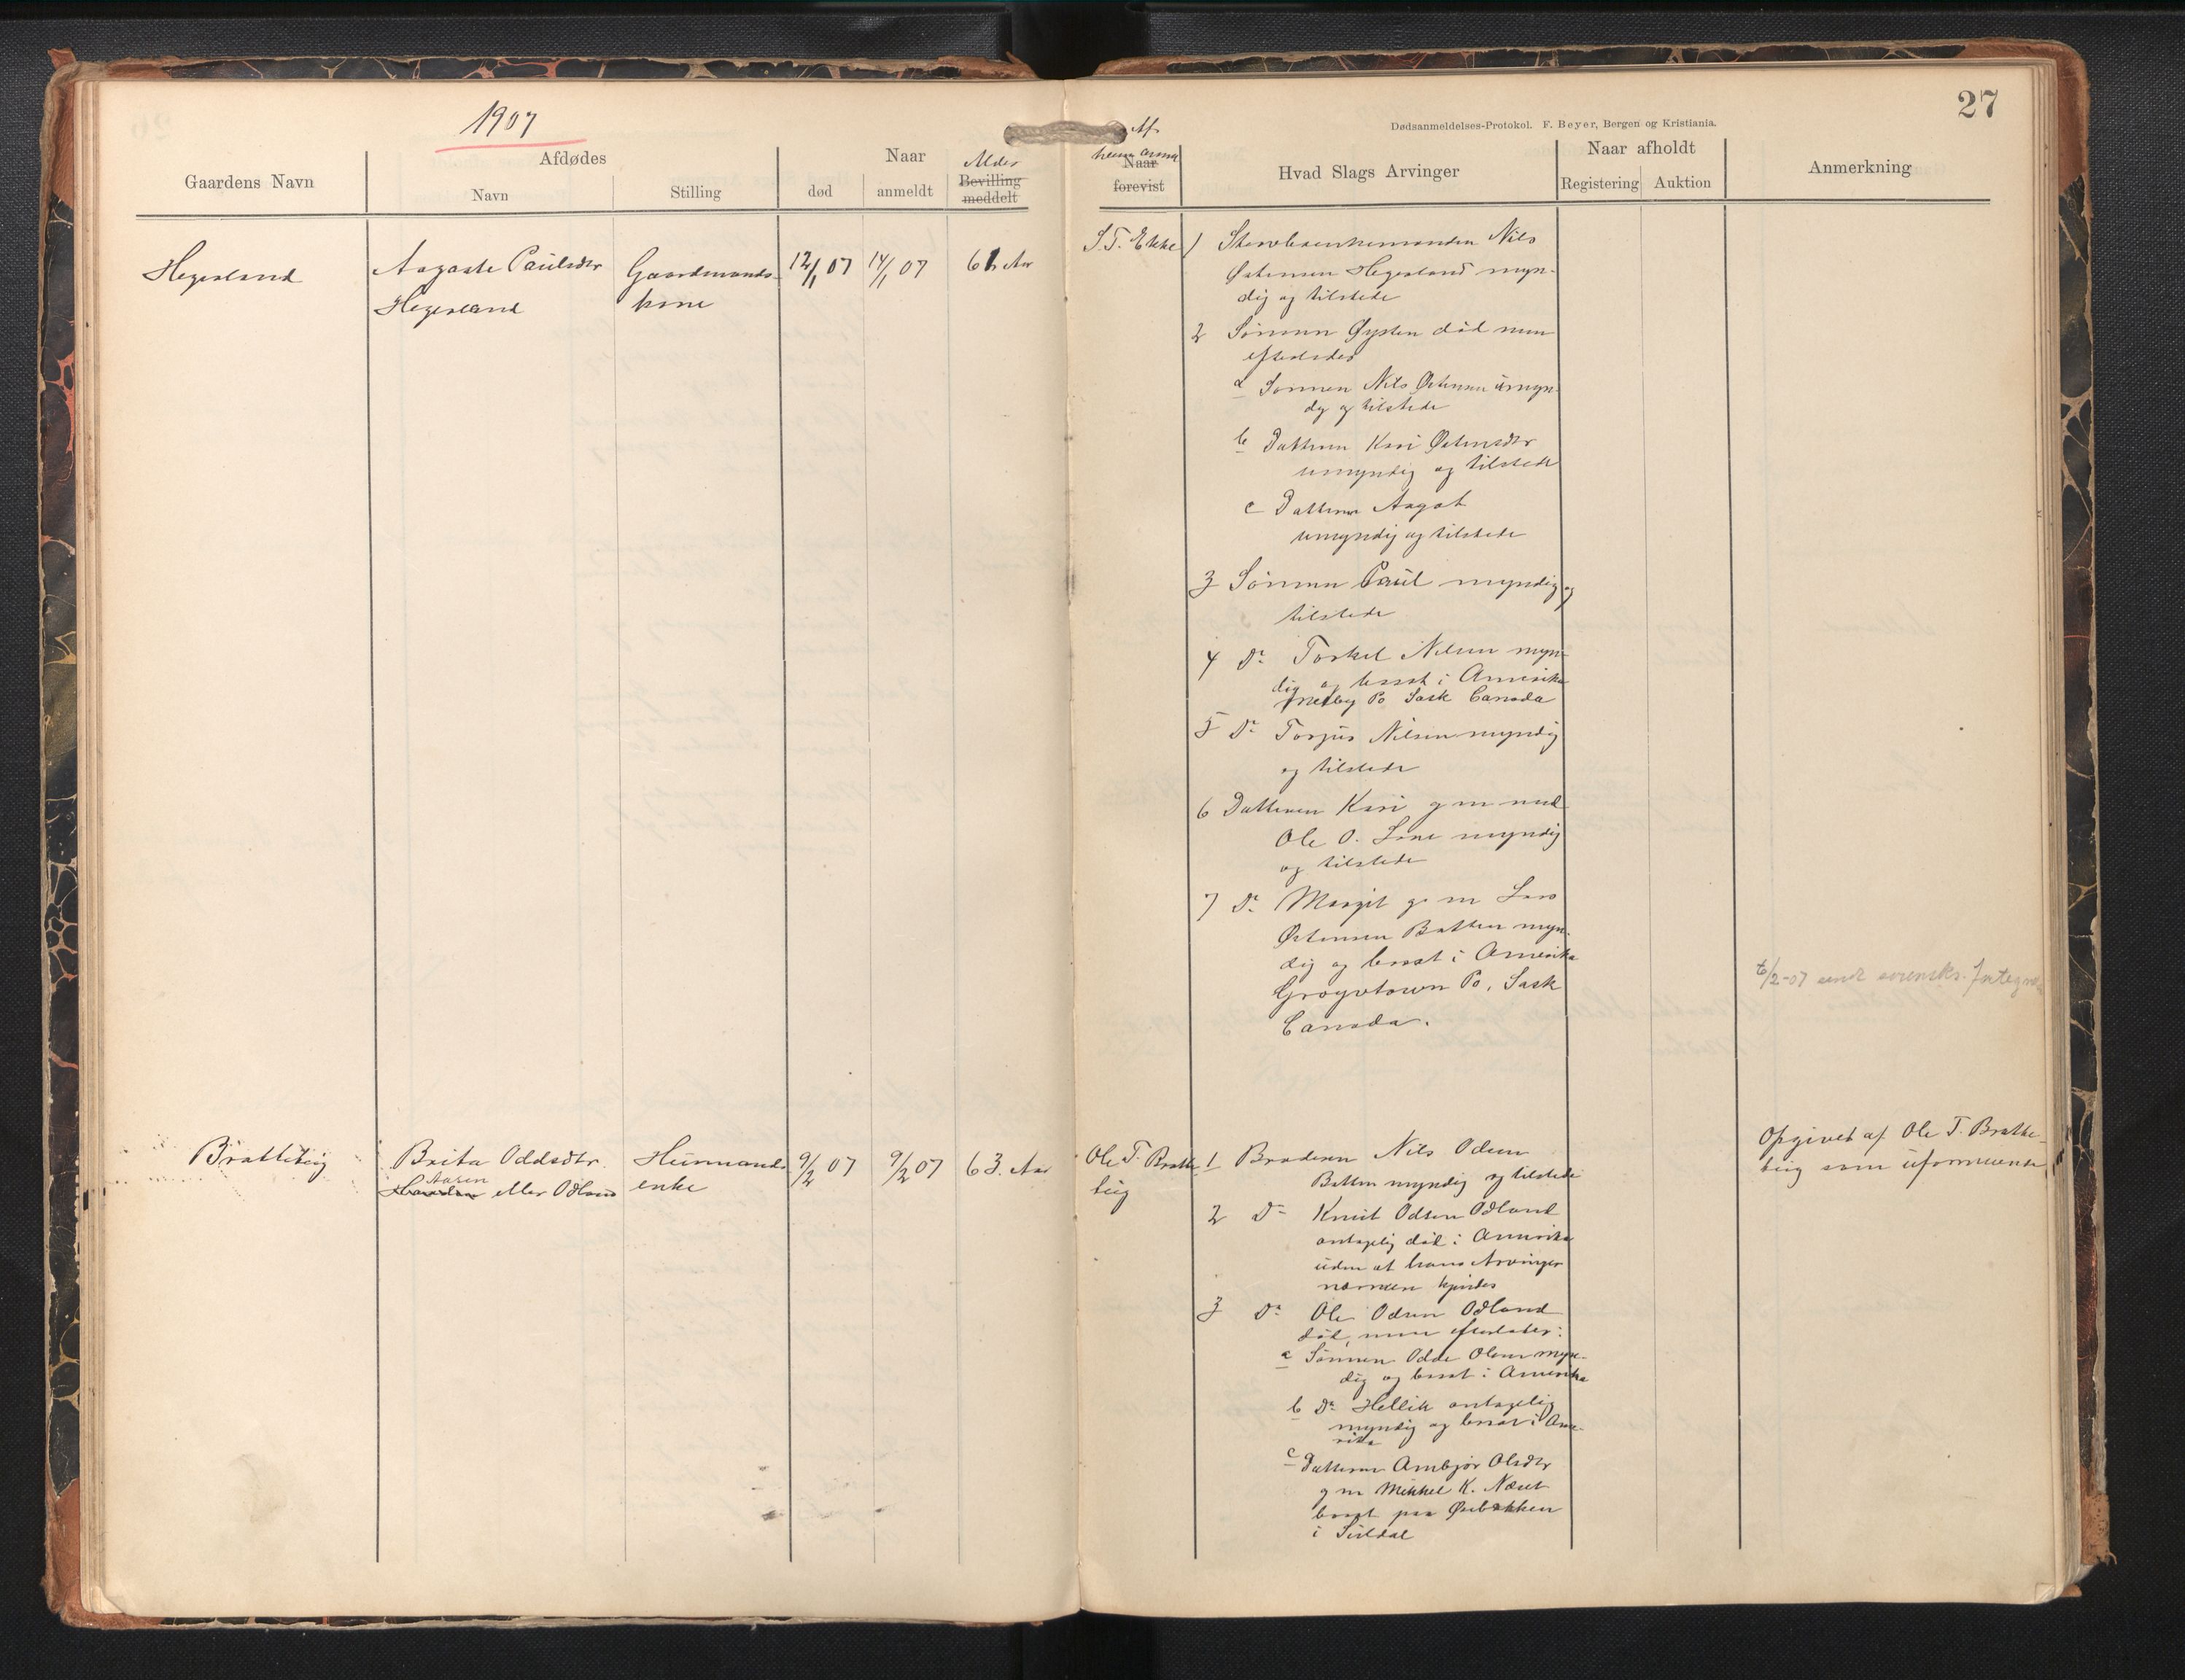 1907
27
Dødsanmeldelses-Protokol. F. Beyer, Bergen og Kristiania.
Gaardens Navn
Afdødes
Navn
Stilling
Naar
død
anmeldt
Alder
Bevilling
meddelt
Af
hvem anm
Naar
forevist
Hvad Slags Arvinger
Naar afholdt
Registering
Auktion
Anmerkning
Hegerland
Aagaate Paulsdtr
Hegerland
Gaardmands-
kone
12/1 07
14/1 07
61 Aar
S. T. Ekke
1 Nils
Østensen Hegerland myn-
dig og tilstede
2 Sønnen Øysten død men
efterlader
a Sønnen Nils Østensen umyn-
dig og tilstede
b Datteren Kari Østensdtr
umyndig og tilstede
c Datteren Aagot
umyndig og tilstede
3 Sønnen Paul myndig og
tilstede
4 Do Torkel Nilsen myn-
dig og bosat i Amerika
Po Sask Canada
5 Do Torjus Nilsen myndig
og tilstede
6 Datteren Kari g m med
Ole O. Lone myndig
og tilstede
7 Do Margit g m Lars
Østensen Batten myn-
dig og bosat i Amerika
Po. Sask
Canada.
6/2-07 sendt
Bratteteig
Brita Oddsdtr
Aasen
eller Odland
Husmands
enke
9/2 07
9/2 07
63 Aar
Ole T. Bratte-
teig
1 Broderen Nils Odsen
Batten myndig og tilstede
2 Do Knut Odsen Odland
antagelig død i Amerika
uden at hans Arvinger
nærmere kjendes
3 Do Ole Odsen Odland
død, men efterlader:
a Sønnen Odde Olsen myn-
dig og bosat i Amerika
b Do Hellik antagelig
myndig og bosat i Ame-
rika
c Datteren Anbjør Olsdtr
g m Mikkel K. Næset
bosat paa Øvebakken
i Suldal
Opgivet af Ole T. Bratte-
teig som uformuende